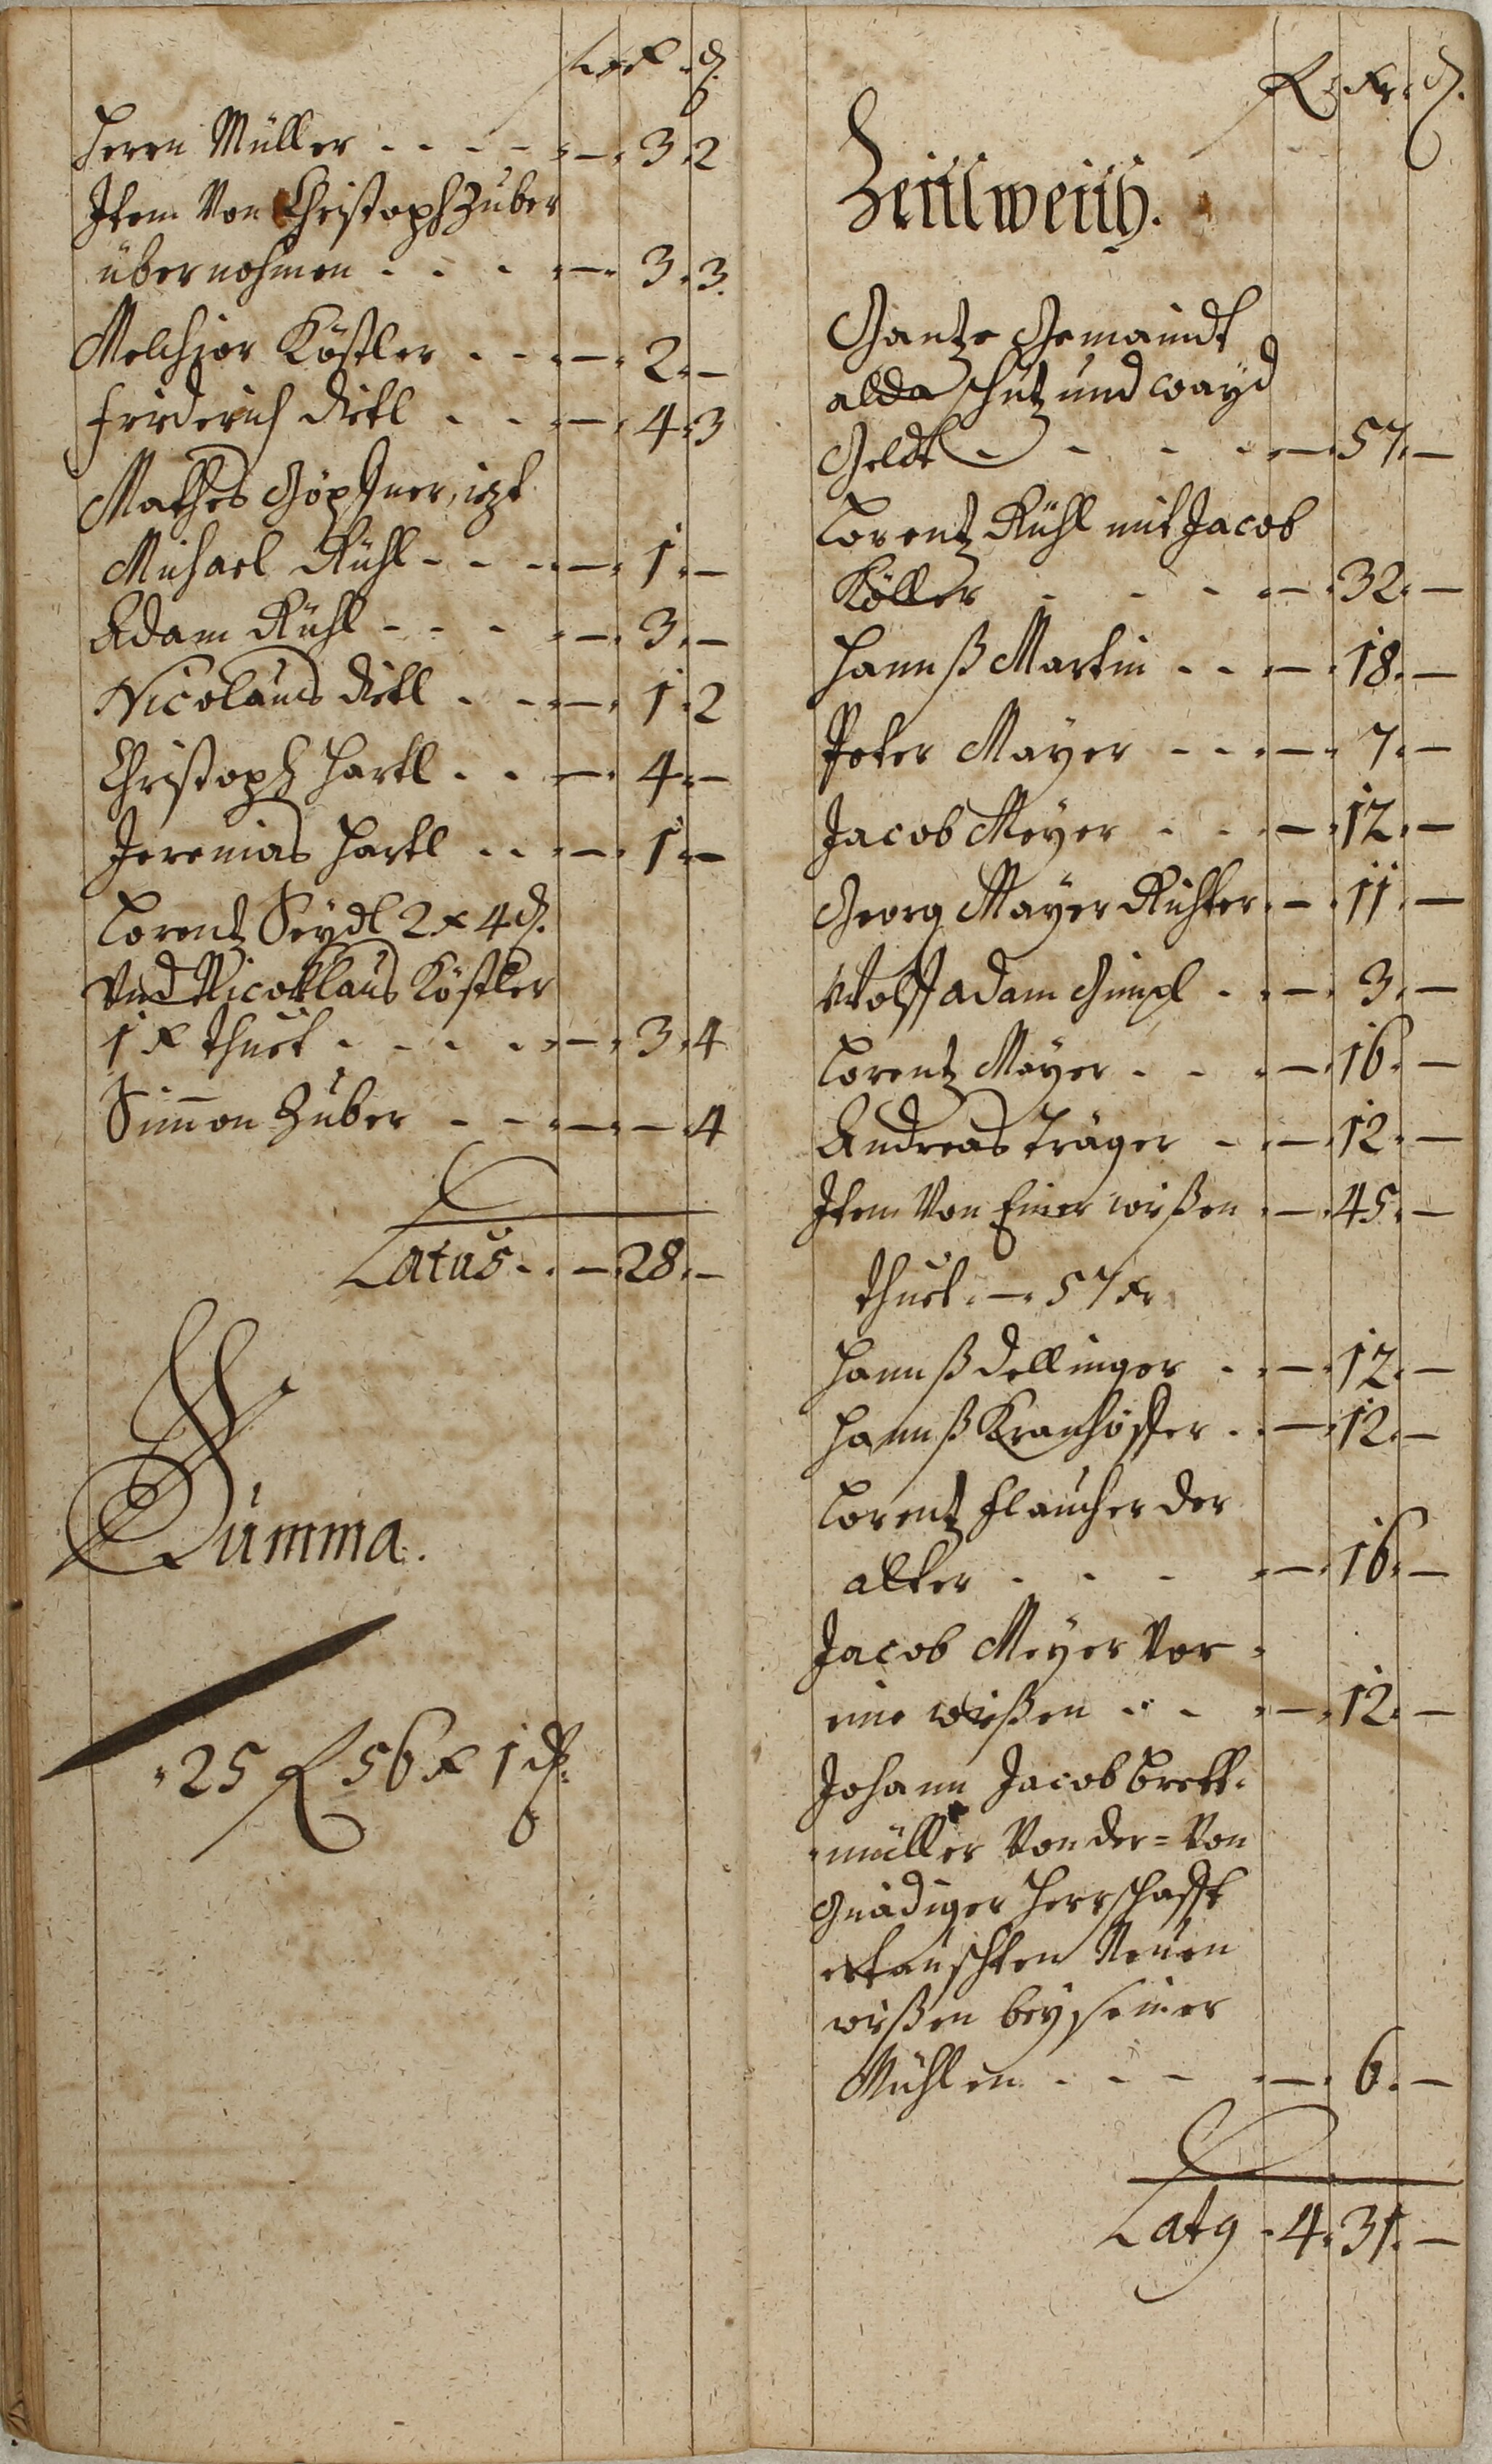 f x ₰
Herrn Müller - - - - — 3 . 2
Item Von Christoph Zuber
übernohmen - - - — 3 . 3.
Melchior Köstler - - — 2 . —
Friderich Dietl - - — 4 . 3
Mathes Göpfner, izt
Michael Rühl - - - — 1 . —
Adam Rühl - - - — 3 . —
Nicolaus Dietl - - — 1 . 2
Christoph Hartl - - — 4 . —
Jeremias Hartl - - — 1 . —
Lorentz Seydl 2 x 4 ₰.
Vnd Nicolaus Köstler
1 x thuet - - - — 3 . 4
Simmon Zuber - - — — . 4
Latus - . — . 28 . —
Summa.
25 f 56 x 1 ₰.
f xr ₰.
Zeitlweith.
Gantze Gemaindt
alda schutz und wayd
Geldt - - - — . 57 . —
Lorentz Rühl mit Jacob
Köller - - - — . 32 . —
Hannß Martin - - — . 18 . —
Peter Mayer - - — . 7 . —
Jacob Meyer - - — . 12 . —
Georg Mayer Richter . — . 11 . —
Wolff Adam Gimpl - . — . 3 . —
Lorentz Mayer - - — . 16 . —
Andreas Träger - . — . 12 . —
Item Von Einer wißen . — . 45 . —
thuet . — . 57 xr
Hannß Dellinger . . — . 12 . —
Hannß Kranhöffer . . — . 12 . —
Lorentz Flaucher der
alter - - - — . 16 . —
Jacob Meyer Vor
eine wießen - - — . 12 . —
Johann Jacob Brett-
müller Von der = Von
Gnädiger Herrschafft
ertauschten Neuen
wißen bey seiner
Mühlen - - - — . 6 . —
Latg . 4 . 31 . —